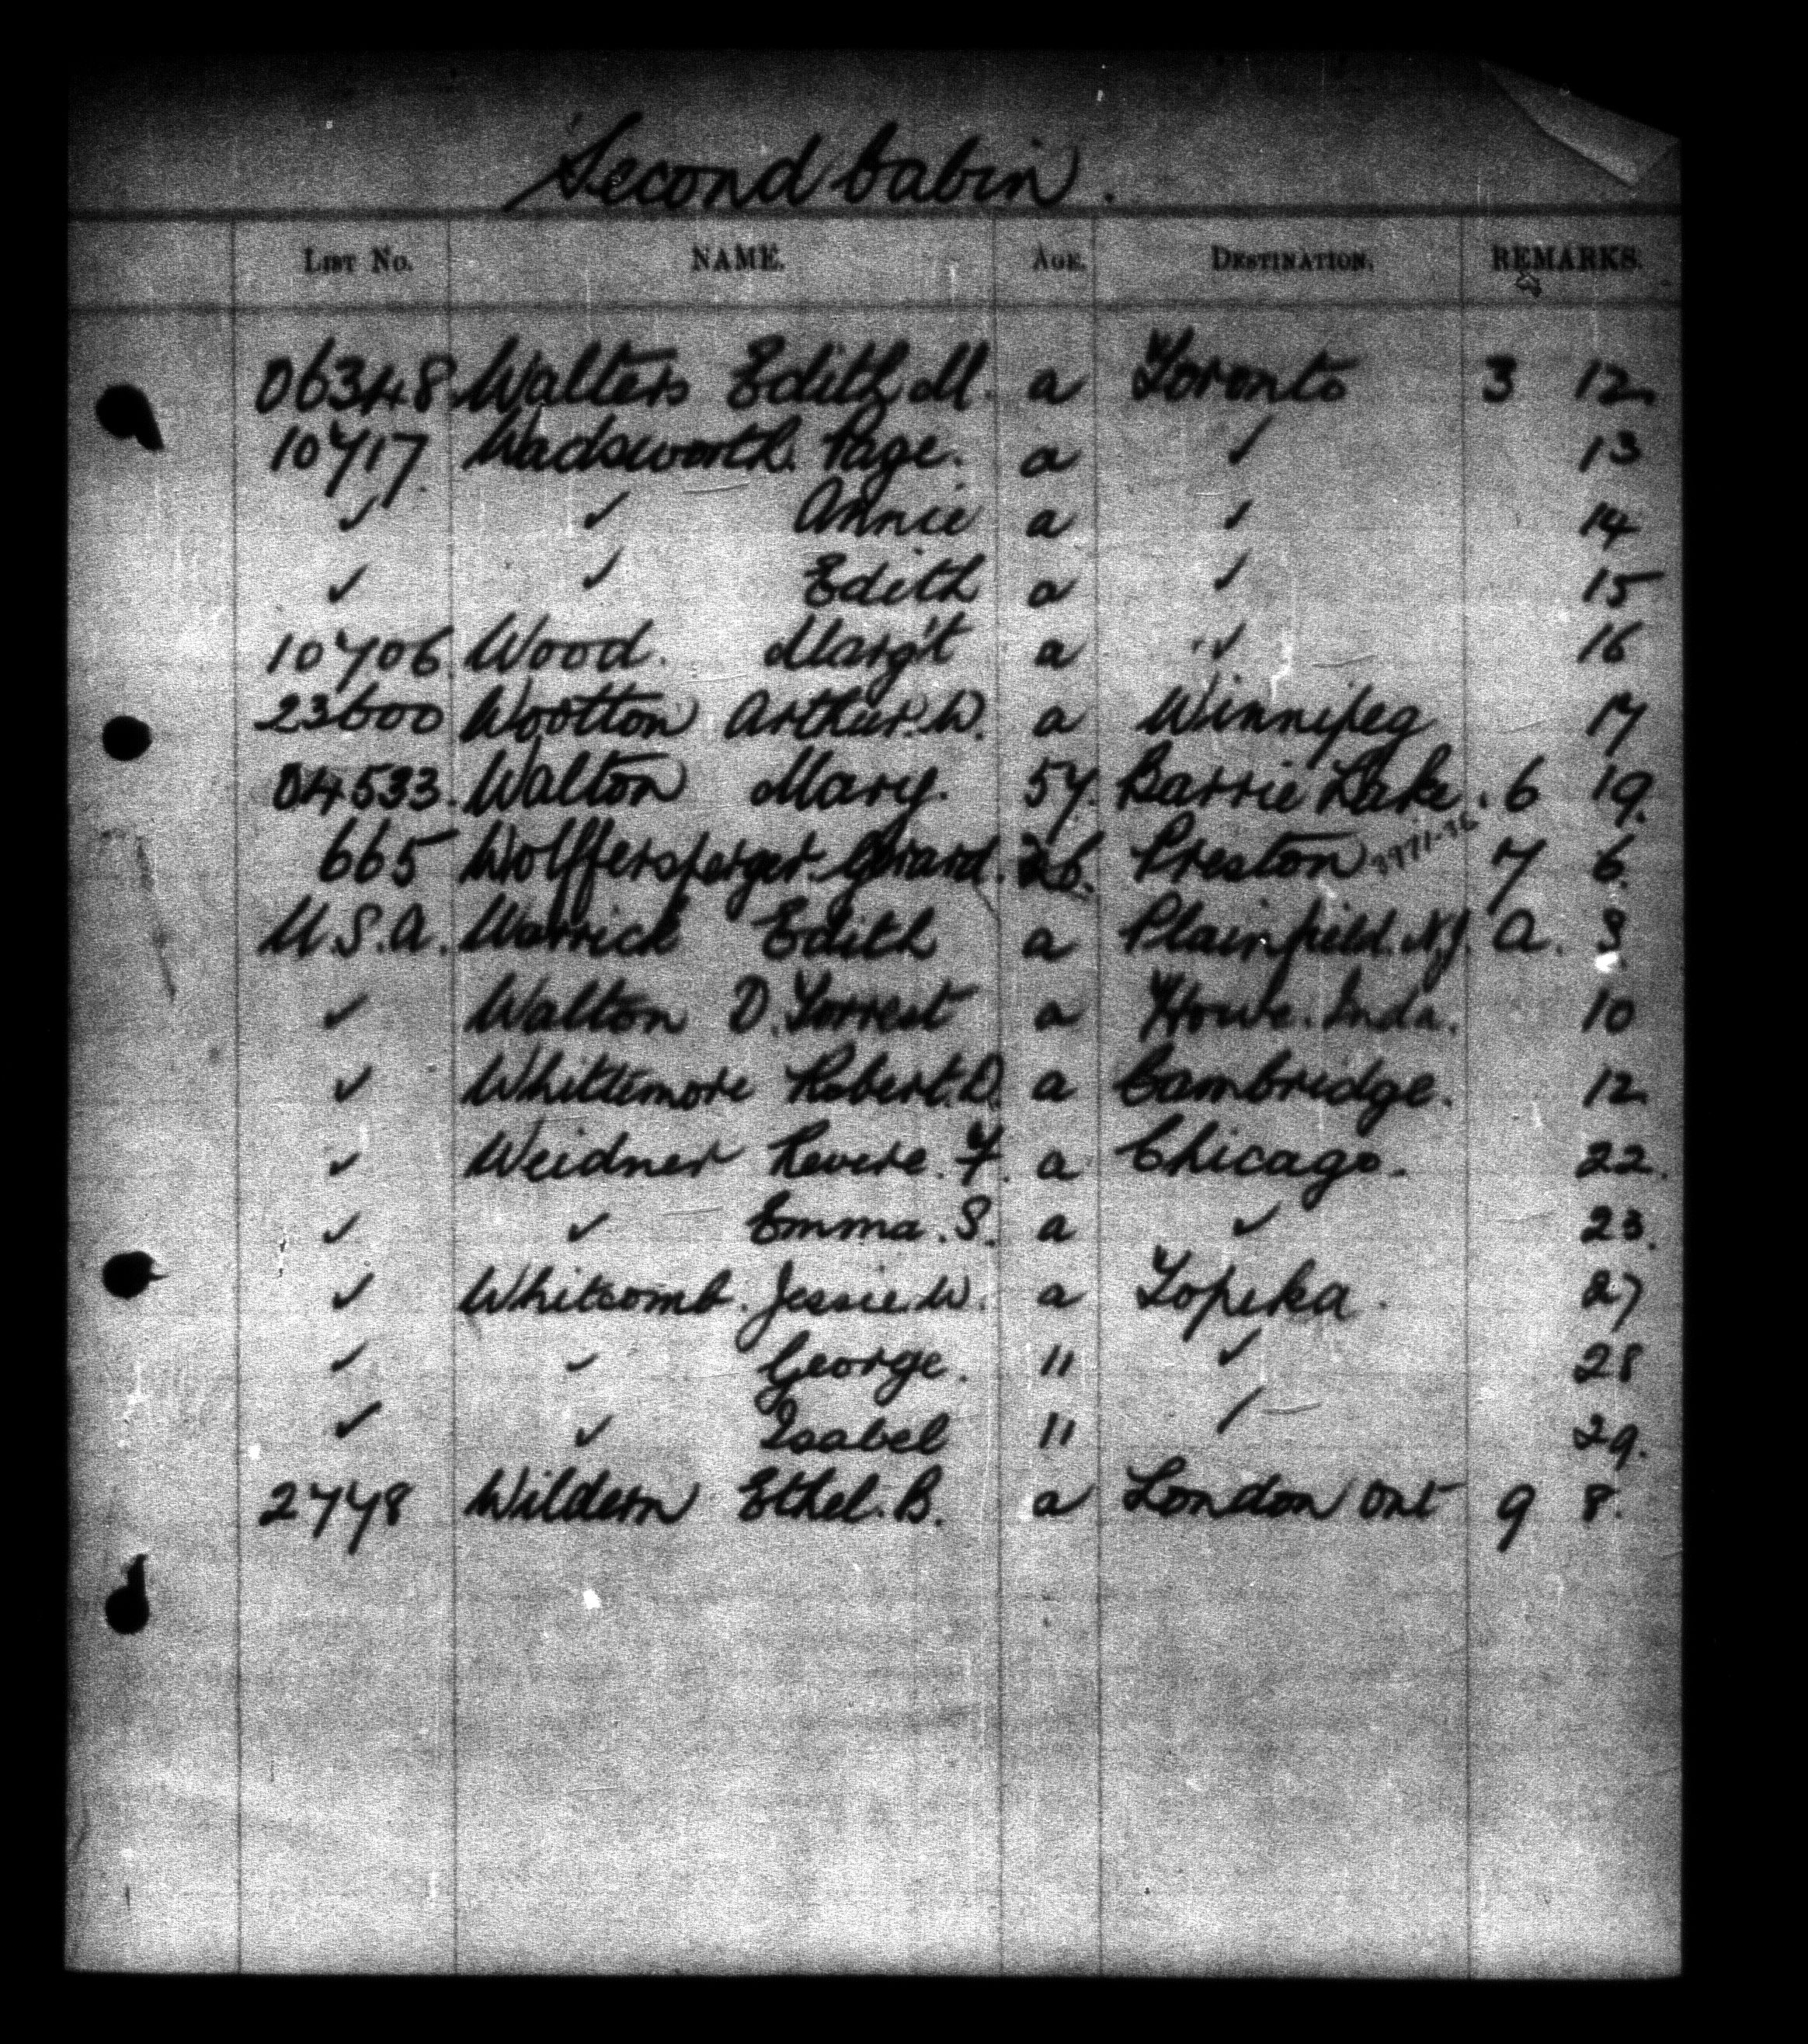 Second Cabin.
LIST NO. NAME. AGE. DESTINATION. REMARKS.
06348 Walters Edith M. a Toronto 3 12
10717 Wadsworth. Page. a ✓ 13
✓ ✓ Annie a ✓ 14
✓ ✓ Edith a ✓ 15
10706 Wood. Marg't a ✓ 16
23600 Wootton Arthur. W. a Winnipeg 17
04533. Walton Mary. 57. Barrie Lake. 6 19.
665 Wolffersperger Gerard. 26. Preston 7 6.
U.S.A. Warrick Edith a Plainfield. N.J. A. 3
✓ Walton D. Forrest a Howe. Inda. 10
✓ Whittemore Robert. D. a Cambridge. 12
✓ Weidner Revere. F. a Chicago. 22.
✓ ✓ Emma. S. a ✓ 23.
✓ Whitcomb. Jessie. W. a Topeka. 27
✓ ✓ George. 11 ✓ 28
✓ ✓ Isabel 11 ✓ 29.
2778 Wildern Ethel. B. a London Ont 9 8.